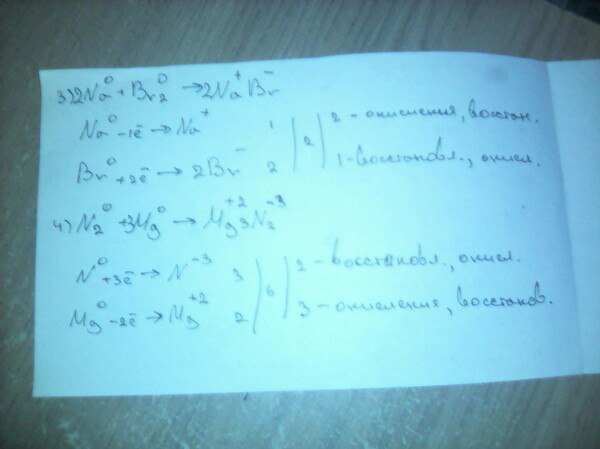 3) 2Na⁰ + Br₂⁰ → 2Na⁺Br⁻
Na⁰ -1ē → Na⁺ 1 | 2 | 2 - окисления, восстан.
Br⁰ +2ē → 2Br⁻ 2 1 - восстановл., окисл.
4) N₂⁰ + 3Mg⁰ → Mg₃⁺²N₂⁻³
N⁰ +3ē → N⁻³ 3 | 6 | 2 - восстановл., окисл.
Mg⁰ -2ē → Mg⁺² 2 3 - окисления, восстанов.